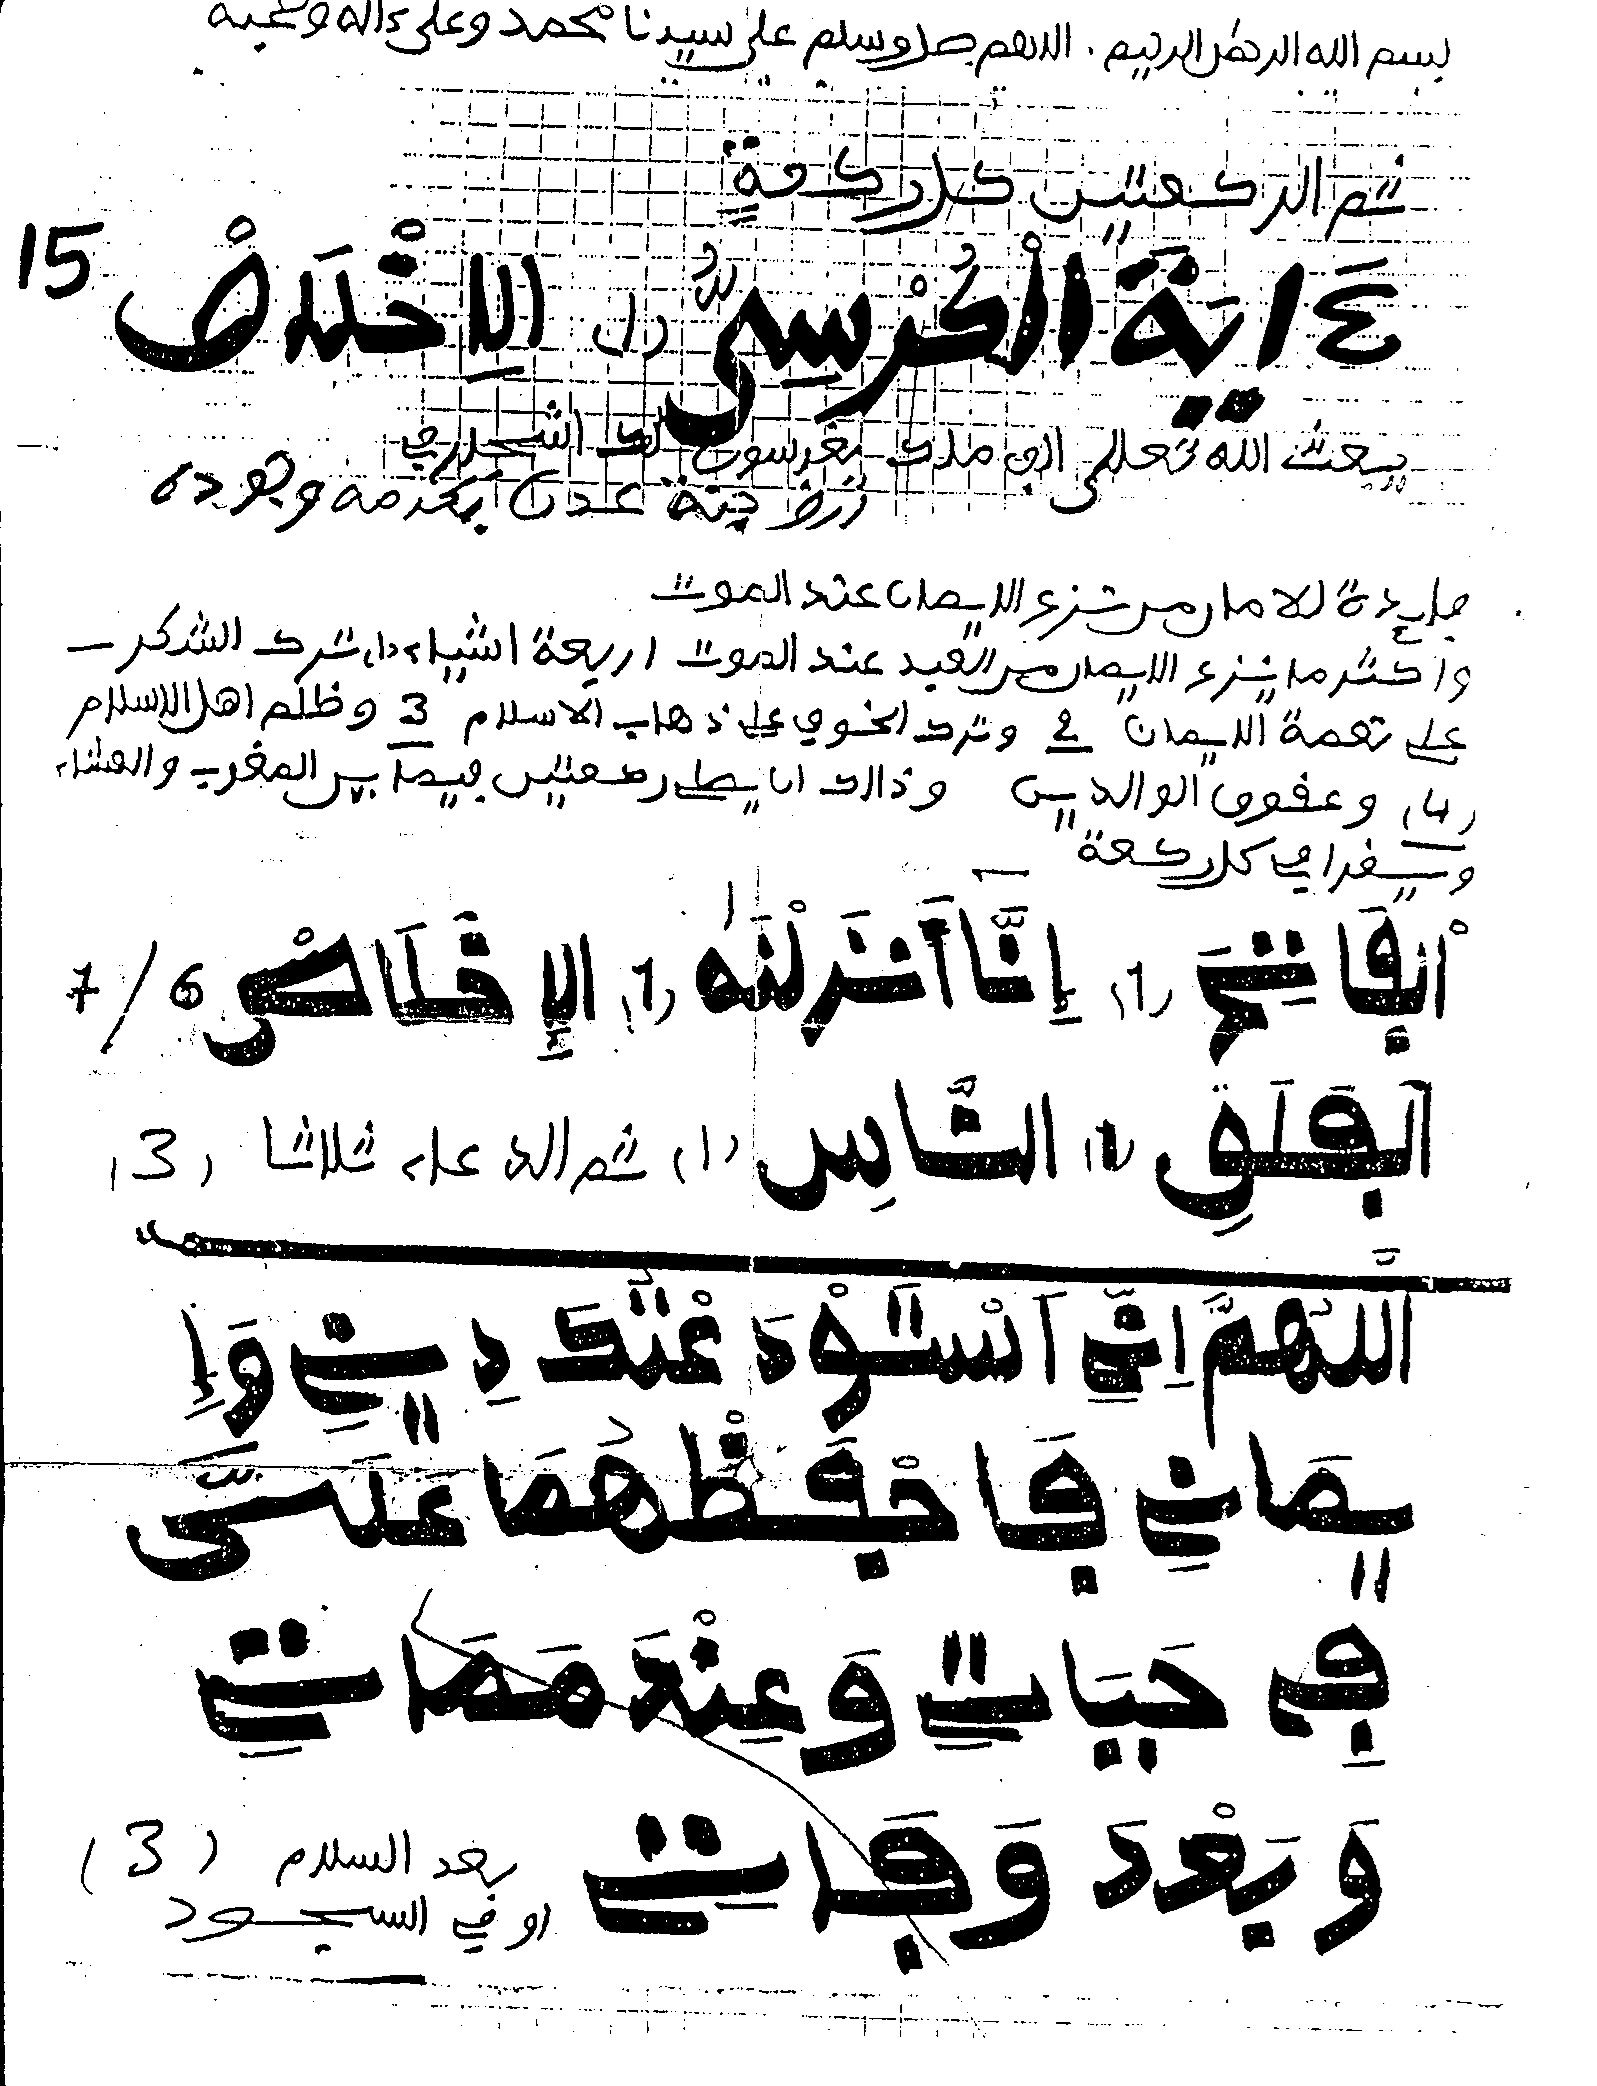 بسم الله الرحمن الرحيم . اللهم صل وسلم على سيدنا محمد وعلى ءاله وصحبه
ثم الركعتين كل ركعة
ءاية الْكُرْسِيُّ (1) الاِخْلَاصْ 15
يبعث الله تعالى الف ملك يغرسون لك الشجار في
ارض جنة عدن بكرمه وجوده
فايدة للامان من نزع الايمان عند الموت
واكثر ما ينزع الايمان من العبد عند الموت اربعة اشياء (1) ترك الشكر
على نعمة الايمان 2 وترك الخوف على ذهاب الاسلام 3 وظلم اهل الاسلام
(4) وعقوق الوالدين وذالك ان يصلى ركعتين فيما بين المغرب والعشاء
ويقرا في كل ركعة
الْفَاتِحَ (1) إِنَّا أَنْزَلْنَهُ (1) الإِخْلَاصْ 6 / 7
الفَلَقِ (1) النَّاسِ (1) ثم الدعاء ثلاثا (3)
اللهُمَّ اِنِّي اَسْتَوْدَعْتُكَ دِينِي وَإِ
يمَانِي فَاحْفَظْهُمَا عَلَيَّ
فِي حَيَاتِي وَعِنْدَ مَمَاتِي
وَبَعْدَ وَفَاتِي بعد السلام (3)
او في السجود